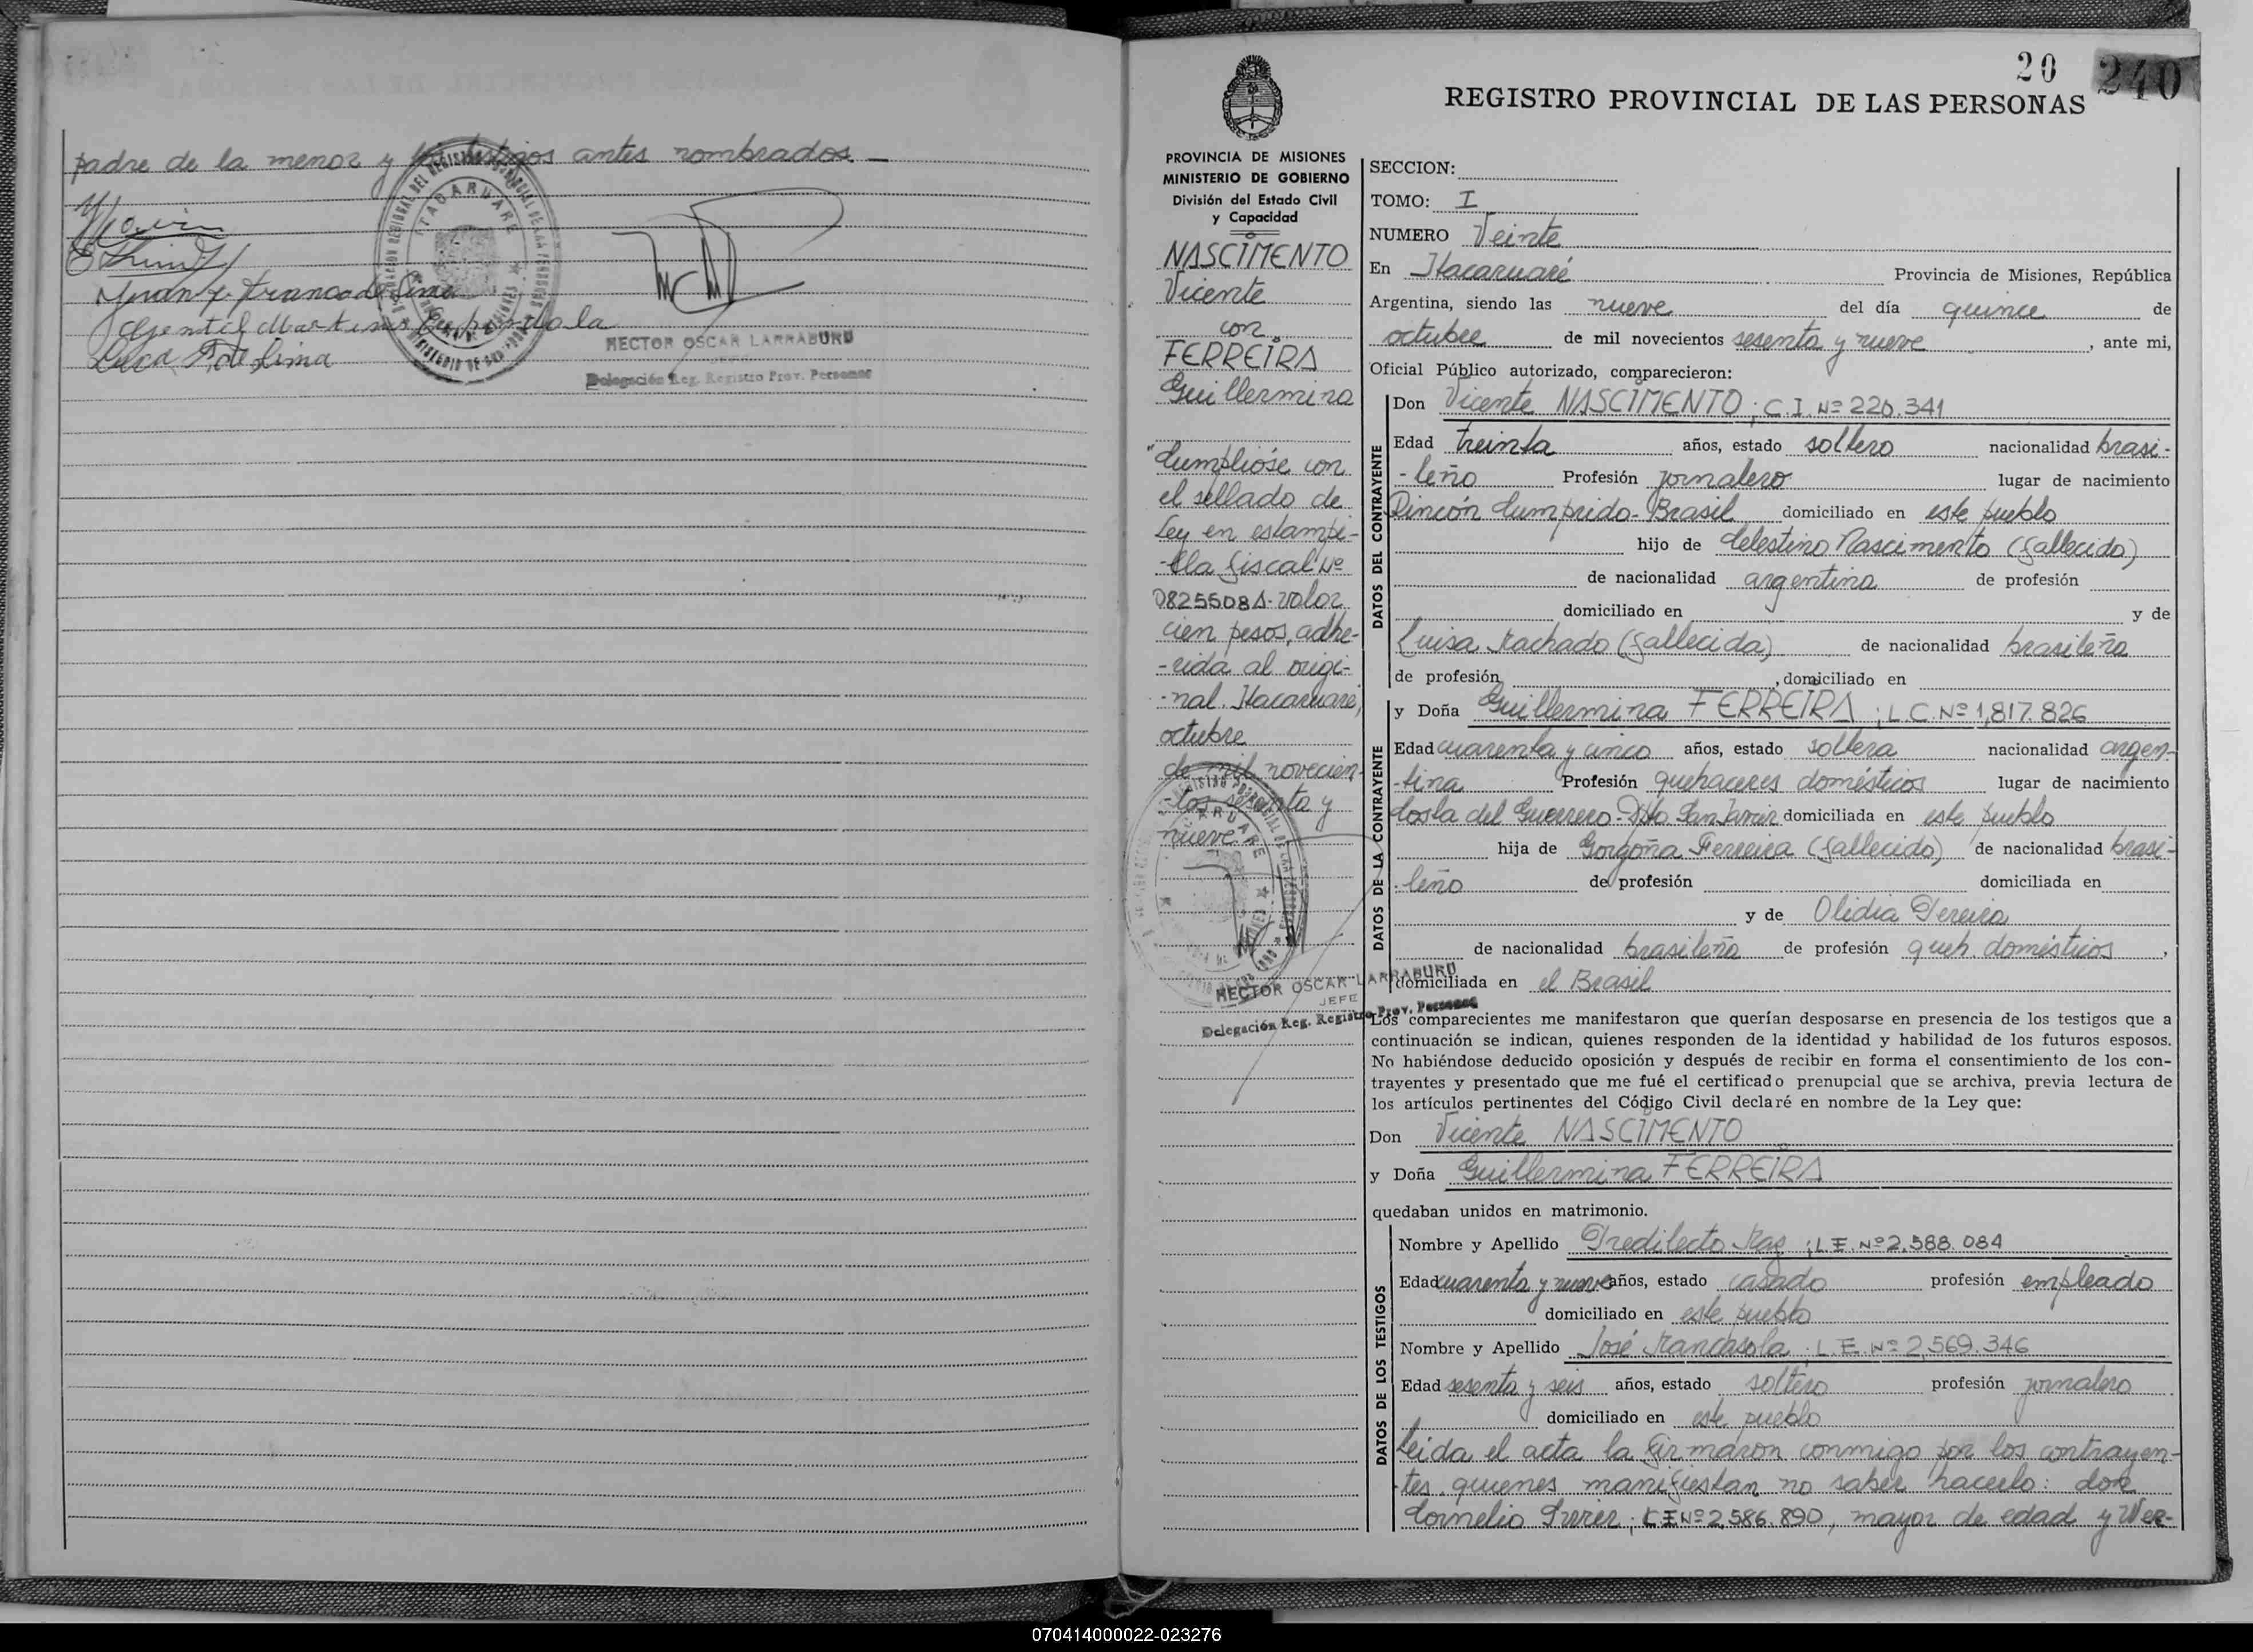 padre de la menor y los testigos antes nombrados. —
Juan F. Franco de Lima
Luca F. de Lima
ITACARUARE
HECTOR OSCAR LARRABURU
Delegación Reg. Registro Prov. Personas
20 240
REGISTRO PROVINCIAL DE LAS PERSONAS
PROVINCIA DE MISIONES
MINISTERIO DE GOBIERNO
División del Estado Civil
y Capacidad
NASCIMENTO
Vicente
con
FERREIRA
Guillermina
"Cumplióse con
el sellado de
Ley en estampi-
-lla fiscal Nº
0825508A-valor
cien pesos, adhe-
-rida al origi-
-nal. Itacaruaré,
octubre
de mil novecien-
-tos sesenta y
nueve.
HECTOR OSCAR LARRABURU
JEFE
Delegación Reg. Registro Prov. Personas
SECCION:
TOMO: I
NUMERO Veinte
En Itacaruaré Provincia de Misiones, República
Argentina, siendo las nueve del día quince de
octubre de mil novecientos sesenta y nueve, ante mi,
Oficial Público autorizado, comparecieron:
DATOS DEL CONTRAYENTE
Don Vicente NASCIMENTO; C.I. Nº 220.341
Edad treinta años, estado soltero nacionalidad brasi-
-leño Profesión jornalero lugar de nacimiento
Rincón Cumprido-Brasil domiciliado en este pueblo
hijo de Celestino Nascimento (fallecido)
de nacionalidad argentina de profesión
domiciliado en y de
Luisa Machado (fallecida) de nacionalidad brasileña
de profesión , domiciliado en
DATOS DE LA CONTRAYENTE
y Doña Guillermina FERREIRA; L.C. Nº 1,817.826
Edad cuarenta y cinco años, estado soltera nacionalidad argen-
-tina Profesión quehaceres domésticos lugar de nacimiento
Costa del Guerrero-Dto. San Javier domiciliada en este pueblo
hija de Gorgoña Ferreira (fallecido) de nacionalidad brasi-
-leño de profesión domiciliada en
y de Olidia Pereira
de nacionalidad brasileña de profesión queh. domésticos,
domiciliada en el Brasil
Los comparecientes me manifestaron que querían desposarse en presencia de los testigos que a
continuación se indican, quienes responden de la identidad y habilidad de los futuros esposos.
No habiéndose deducido oposición y después de recibir en forma el consentimiento de los con-
trayentes y presentado que me fué el certificado prenupcial que se archiva, previa lectura de
los artículos pertinentes del Código Civil declaré en nombre de la Ley que:
Don Vicente NASCIMENTO
y Doña Guillermina FERREIRA
quedaban unidos en matrimonio.
DATOS DE LOS TESTIGOS
Nombre y Apellido Predilecto ; L.E. Nº 2.588.084
Edad cuarenta y nueve años, estado casado profesión empleado
domiciliado en este pueblo
Nombre y Apellido José ; L.E. Nº 2,569.346
Edad sesenta y seis años, estado soltero profesión jornalero
domiciliado en este pueblo
Leida el acta la firmaron conmigo por los contrayen-
-tes quienes manifiestan no saber hacerlo: don
Cornelio ; Nº 2.586.890, mayor de edad y Wer-
070414000022-023276